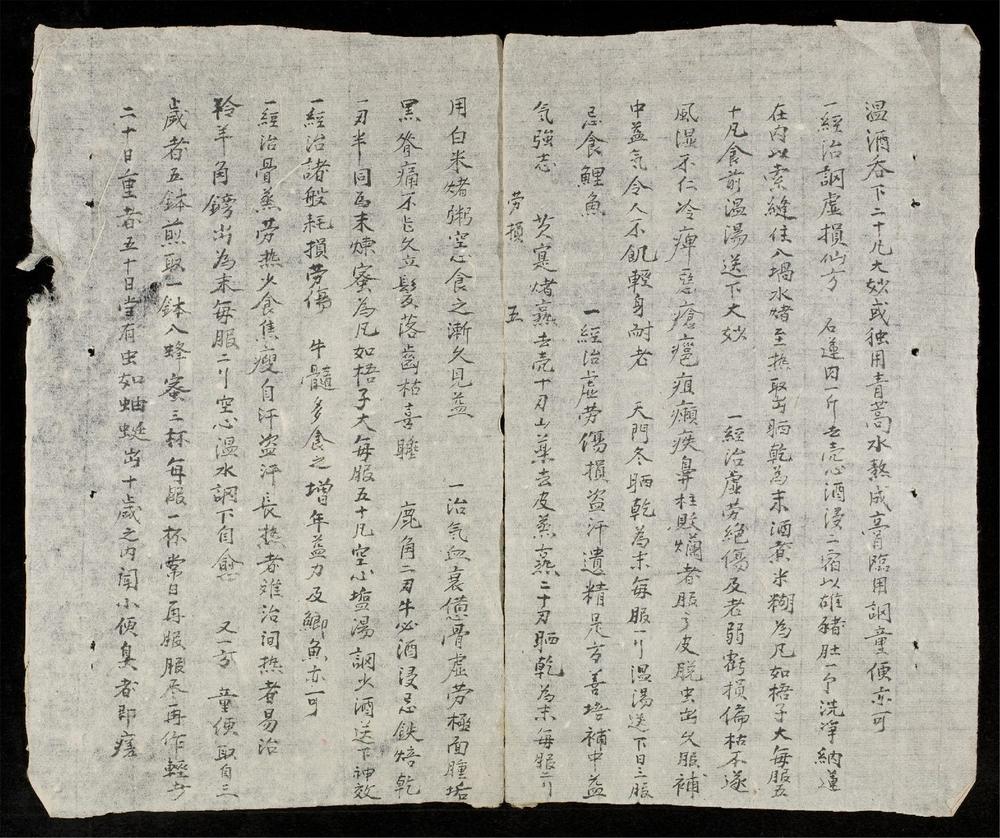 温酒吞下二十凡大妙或独用青蒿水熬成膏臨用調童便亦可
一經治調虛損仙方　石蓮肉一斤去壳心酒浸二宿以雄豬肚一个洗淨納蓮
在內以索縫住入堝水煮至熱取出晒乾為末酒煮米糊為凡如梧子大每服五
十凡食前温湯送下大妙　一經治虛劳絕傷及老弱虧損偏枯不遂
風湿不仁冷痺惡瘡疤疽癩疾鼻柱敗爛者服了皮脱虫出久服補
中益气令人不飢輕身耐老　天門冬晒乾為末每服一刂温湯送下日三服
忌食鯉魚　一經治虛劳傷損盗汗遺精是方善培補中益
气強志　芡寔煮蒸去壳十刃山藥去皮蒸二十刃晒乾為末每服二刂
劳損　五
用白米煮粥空心食之漸久見益　一治气血衰憊骨虛劳極面腫垢
黑脊痛不能久立髮落齒枯喜睡　鹿角二刃牛必酒浸忌鉄焙乾
一刃半同為末煉蜜為凡如梧子大每服五十凡空心塩湯調少酒送下神效
一經治諸般耗損劳傷　牛髓多食之增年益力及鯽魚亦可
一經治骨蒸劳热少食焦瘦自汗盗汗長热者难治间热者易治
羚羊角鎊出為末每服二刂空心温水調下自愈　又一方　童便取自三
歲者五鉢煎取一鉢八蜂蜜三杯每服一杯常日再服服尽再作輕者
二十日重者五十日當有虫如蚰蜒出十歲之内聞小便臭者即瘥